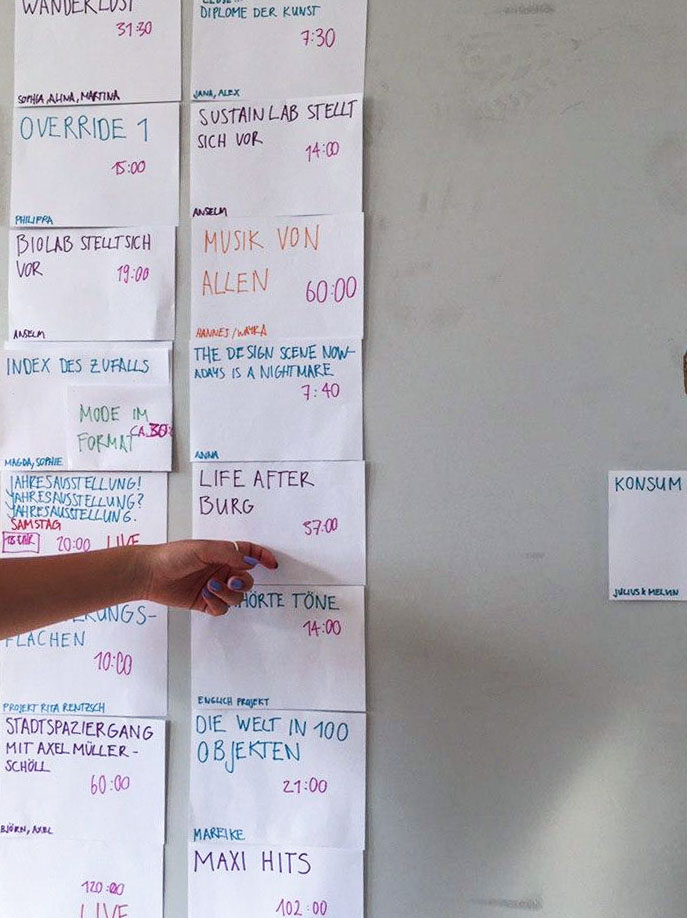 WANDERLUST
31:30
SOPHIA, ALINA, MARTINA
OVERRIDE 1
15:00
PHILIPPA
BIOLAB STELLT SICH
VOR
19:00
ANSELM
INDEX DES ZUFALLS
MODE IM
FORMAT
CA. 30:
MAGDA, SOPHIE
JAHRESAUSSTELLUNG!
JAHRESAUSSTELLUNG?
JAHRESAUSSTELLUNG.
SAMSTAG
20:00 LIVE
FLÄCHEN
10:00
PROJEKT RITA RENTZSCH
STADTSPAZIERGANG
MIT AXEL MÜLLER-
SCHÖLL
60:00
BJÖRN, AXEL
120:00
LIVE
DIPLOME DER KUNST
7:30
JANA, ALEX
SUSTAINLAB STELLT
SICH VOR
14:00
ANSELM
MUSIK VON
ALLEN
60:00
HANNES / WAYRA
THE DESIGN SCENE NOW-
ADAYS IS A NIGHTMARE
7:40
ANNA
LIFE AFTER
BURG
57:00
HÖRTE TÖNE
14:00
ENGLICH PROJEKT
DIE WELT IN 100
OBJEKTEN
21:00
MAREIKE
MAXI HITS
102:00
KONSUM
JULIUS & MELVIN